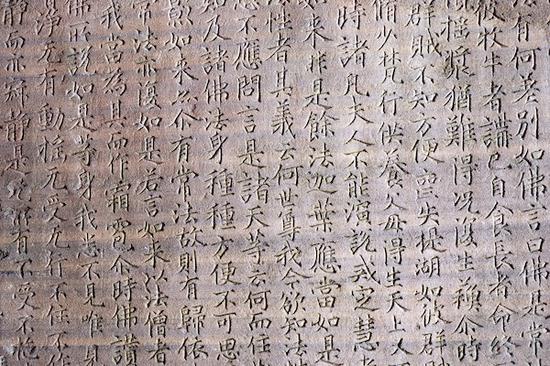 有何差別如佛言曰佛是常
彼牧牛者搆已自食長者命終
搖漿猶難得況復生酥尒時
群賊不知方便亞失提湖如彼群賊
脩少梵行供養父母得生天上又
時諸凡夫人不能演說戒定慧
來非是餘法迦葉應當如是
法性者其義云何世尊我今欲知法
不應問言是諸天等云何而住
如及諸佛法身種種方便不可思
如來尒有常法故則有歸依
常法亦復如是若言如來以法僧者
我當為其而作霜雹尒時佛讚
佛所說如見等身我悉不見唯身
淨无有動搖无受无行不住不作
靜而亦寂靜是无所有不受不施